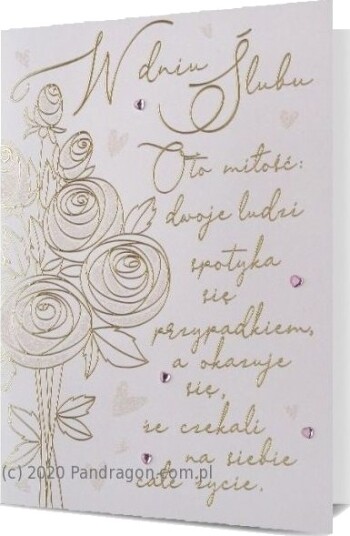 W dniu Ślubu
Oto miłość:
dwoje ludzi
spotyka
się
przypadkiem,
a okazuje
się,
że czekali
na siebie
całe życie.
(c) 2020 Pandragon.com.pl